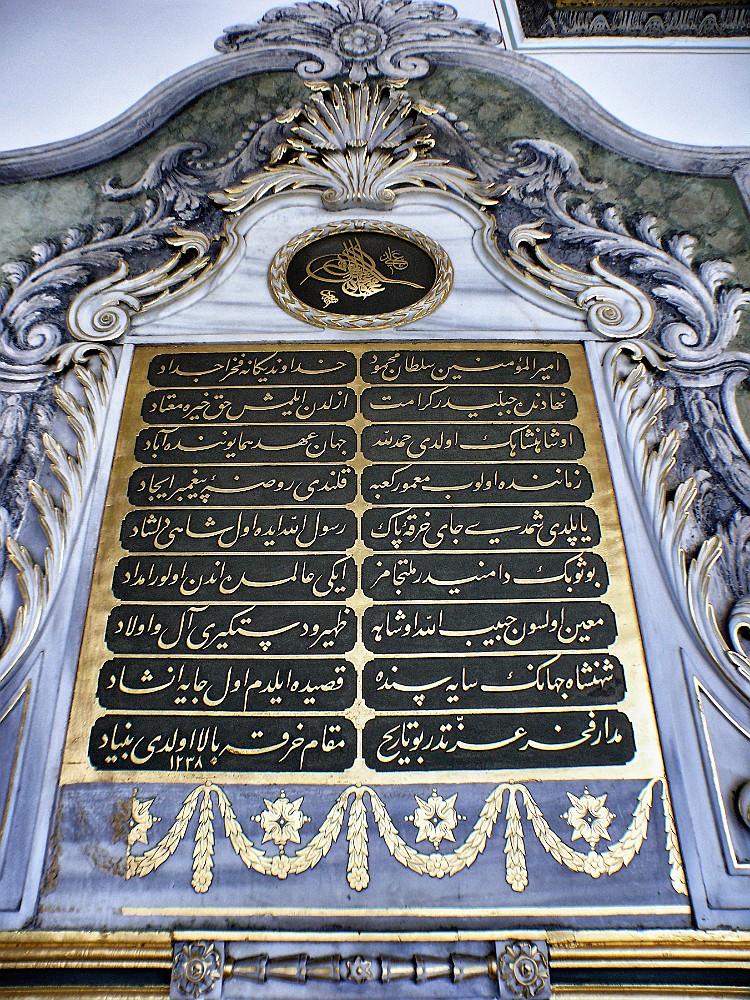 امیر المؤمنین سلطان محمود خداوند یگانه فخر اجداد
نهادنده جبلیدر کرامت ازلدن ایلمش حق خیره معتاد
او شاهنشاهك اولدی حمد لله جهان عهد همایوننده آباد
زماننده اولوب معمور کعبه قلندی روضهٔ پیغمبر ایجاد
یاپلدی شمدی جای خرقهٔ پاك رسول الله ایده اول شاهی دلشاد
بو ثوبك دامنیدر ملتجامز ایکی عالمده اندن اولور امداد
معین اولسون حبیب الله او شاهه ظهیر و دستگیری آل و اولاد
شهنشاه جهانك سایه سنده قصیده ایلدم اول جایه انشاد
مدار فخر عزتدر بو تاریخ مقام خرقه بالا اولدی بنیاد
١٢٣٨